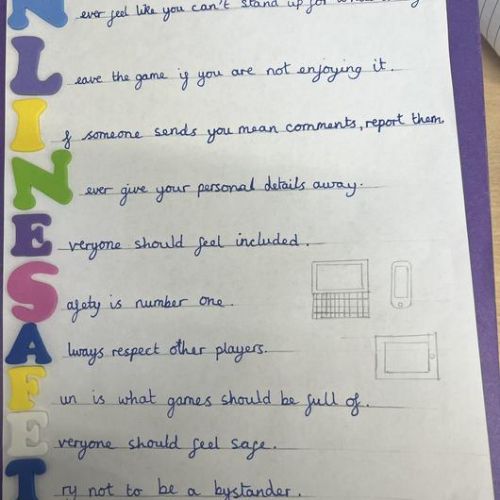 Never feel like you can't stand up for
Leave the game if you are not enjoying it.
If someone sends you mean comments, report them
Never give your personal details away.
Everyone should feel included.
Safety is number one.
Always respect other players.
Fun is what games should be full of.
Everyone should feel safe.
Try not to be a bystander.